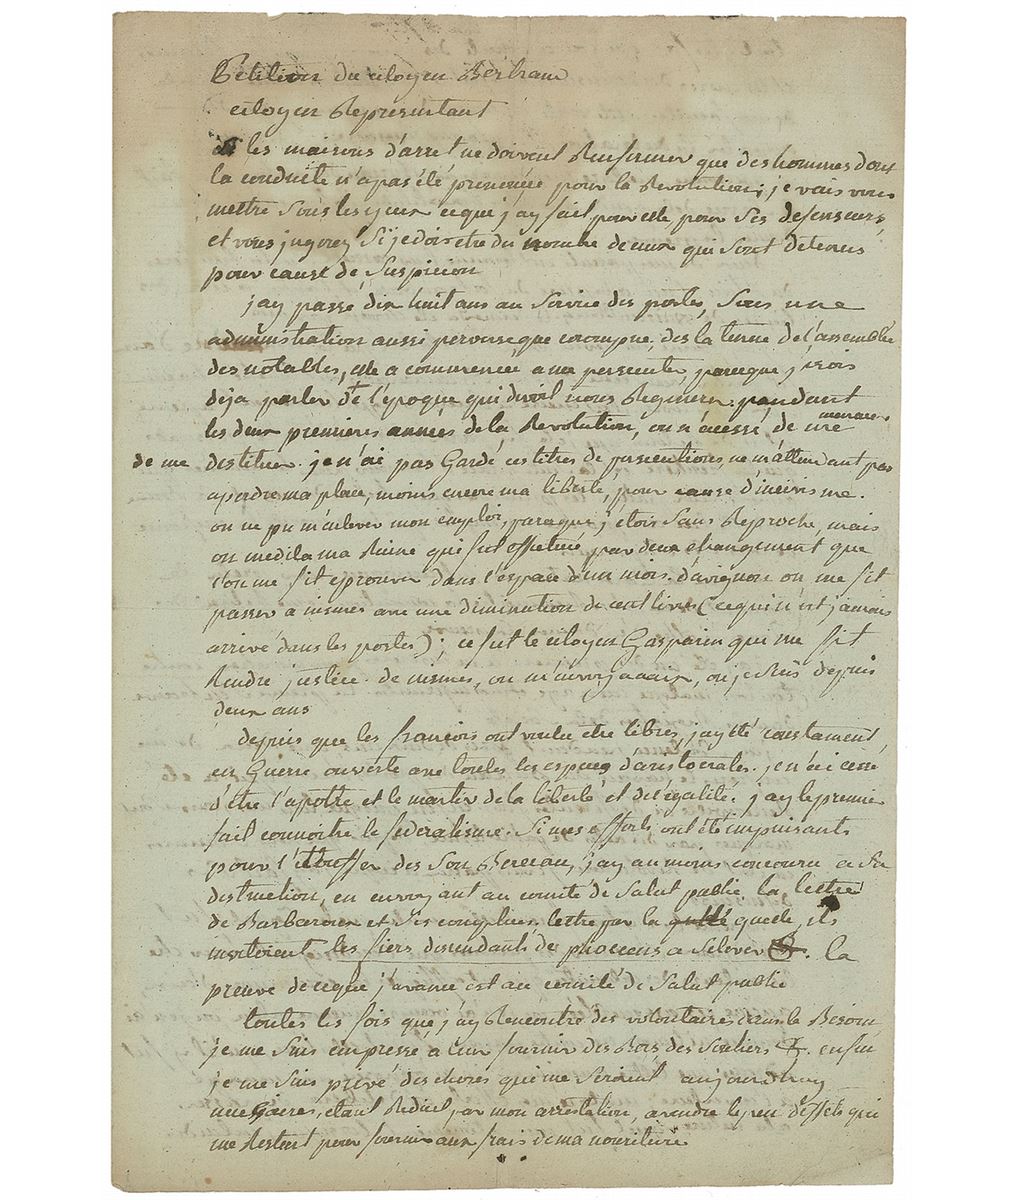 Pétition du citoyen Bertram
citoyen Representant
Si les maisons d'arret ne doivent Renfermer que des hommes dont
la conduite n'a pas été prononcée pour la Revolution; je vais vous
mettre sous les yeux ce que j'ay fait pour elle, pour ses defenseurs,
et vous jugerez si je dois etre du nombre de ceux qui sont détenus
pour cause de suspicion
j'ay passé dix huit ans au service des postes, sous une
administration aussi perverse que corompue, des la tenue de l'assemblée
des notables, elle a commencé a me persecuter, parceque j'osois
déja parler de l'époque qui devoit nous Regénérer. pendant
les deux premieres années de la Revolution, on n'a cessé de me menacer
de me destituer. je n'ai pas Gardé ces titres de persecutions, ne m'attendant pas
a perdre ma place, moins encore ma liberté, pour cause d'incivisme.
on ne pu m'enlever mon emploi, parceque j'etois sans Reproche, mais
on medita ma Ruine qui fut effectuée par deux changement que
l'on me fit eprouver dans l'espace d'un mois. d'avignon on me fit
passer a nismes avec une diminution de cent livres (ce qui n'est jamais
arrivé dans les postes); ce fut le citoyen Gasparin qui me fit
Rendre justice. de nismes, on m'envoya a aix, ou je suis depuis
deux ans
depuis que les françois ont voulu etre libres, j'ay été constament
en Guerre ouverte avec toutes les especes d'aristocrates. je n'ai cessé
d'être l'apotre et le martir de la liberté et de l'égalité. j'ay le premier
fait connoitre le federalisme. Si mes efforts ont été impuissants
pour l'étouffer des son Berceau, j'ay au moins concouru a sa
destruction, en envoyant au comité de Salut public la lettre
de Barbaroux et ses complices, lettre par la quelle ils
invitoient les fiers descendants des phocéens a s'élever &. la
preuve de ce que j'avance est au comité de Salut public
toutes les fois que j'ay Rencontré des volontaires dans le Besoin
je me suis empressé a leur fournir des Bas des souliers &. enfin
je me suis privé des choses qui me seroient aujourdhuy
necessaires, etant Reduit, par mon arrestation, a vendre le peu d'effets qui
me Restent pour fournir aux frais de ma nouriture